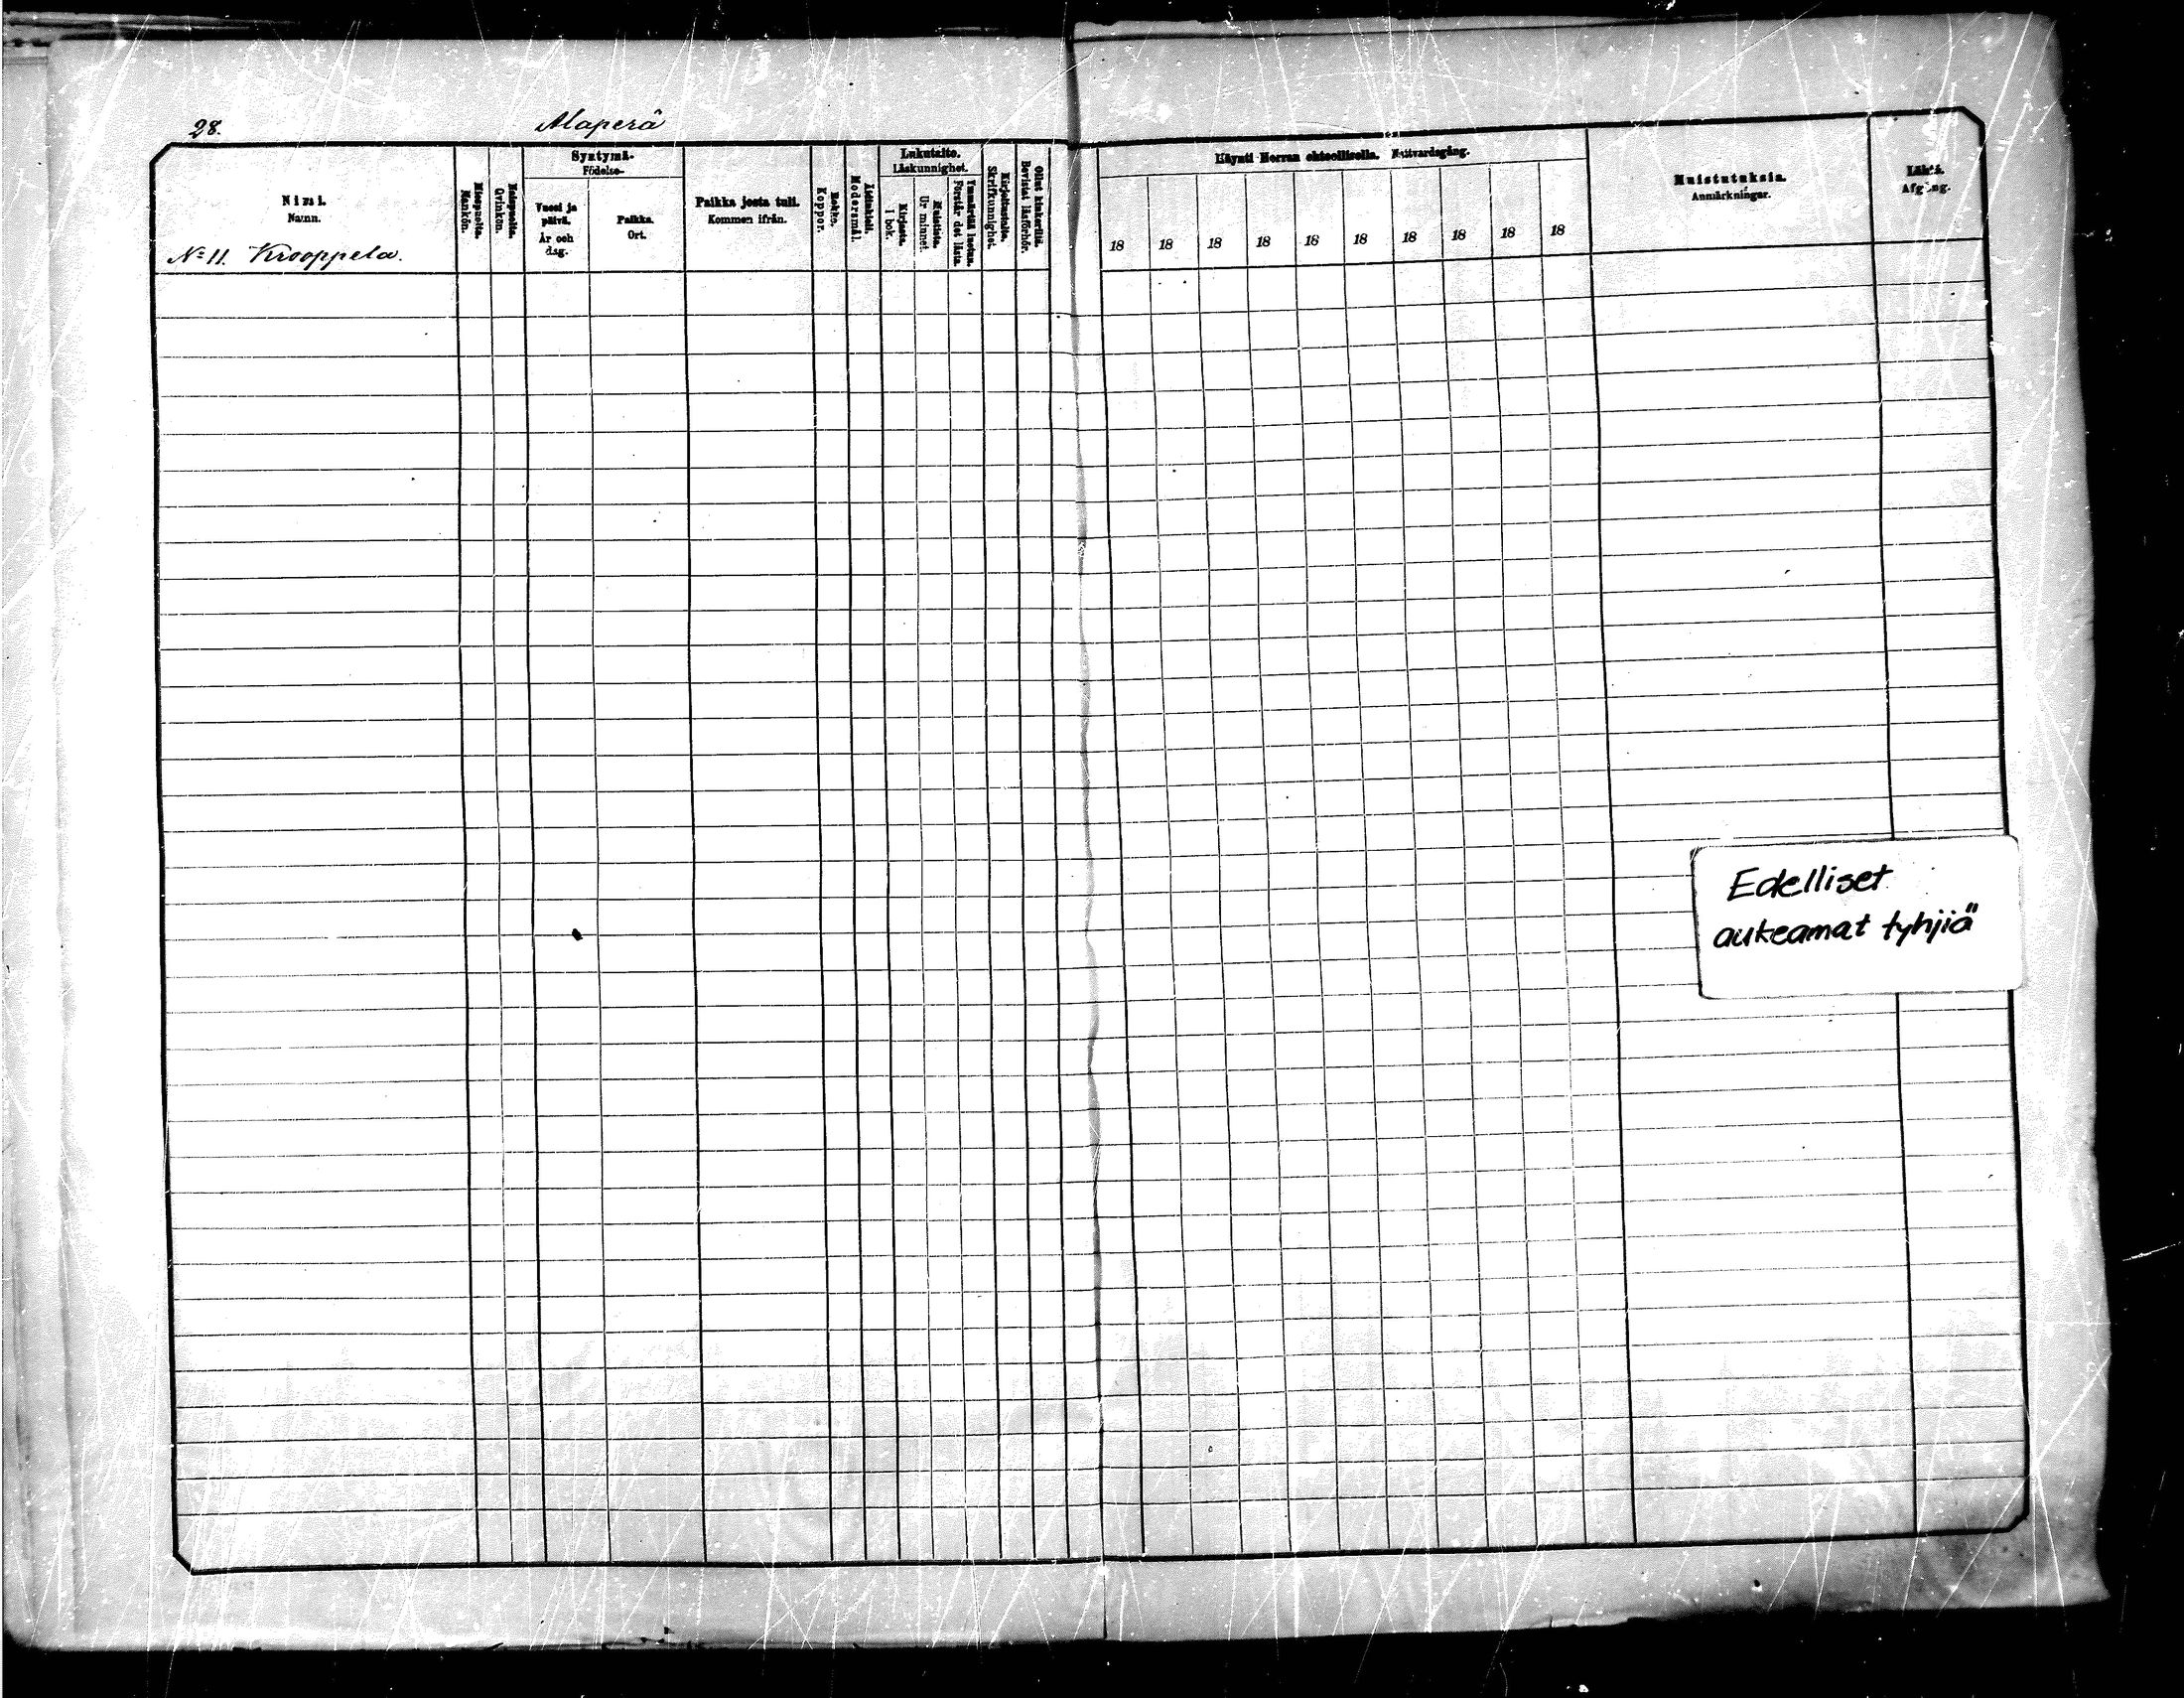 28.
Alaperä
Nimi.
Namn.
Miespuolia.
Mankön.
Naispuolia.
Qvinkön.
Syntymä-
Födelse-
Vuosi ja
päivä.
År och
dag.
Paikka.
Ort.
Paikka josta tuli.
Kommen ifrån.
Rokko.
Koppor.
Äidinkieli.
Modersmål.
Lukutaito.
Läskunnighet.
Kirjasta.
I bok.
Muistista.
Ur minnet.
Ymmärtää luetun.
Förstår det lästa.
Kirjoitustaito.
Skrifkunnighet.
Ollut kinkerillä.
Bevistat läsförhör.
Käynti Herran ehtoollisella. Nattvardsgång.
18 18 18 18 18 18 18 18 18 18
Muistutuksia.
Anmärkningar.
Lähtö.
Afgång.
No 11. Krooppela.
Edelliset
aukeamat tyhjiä